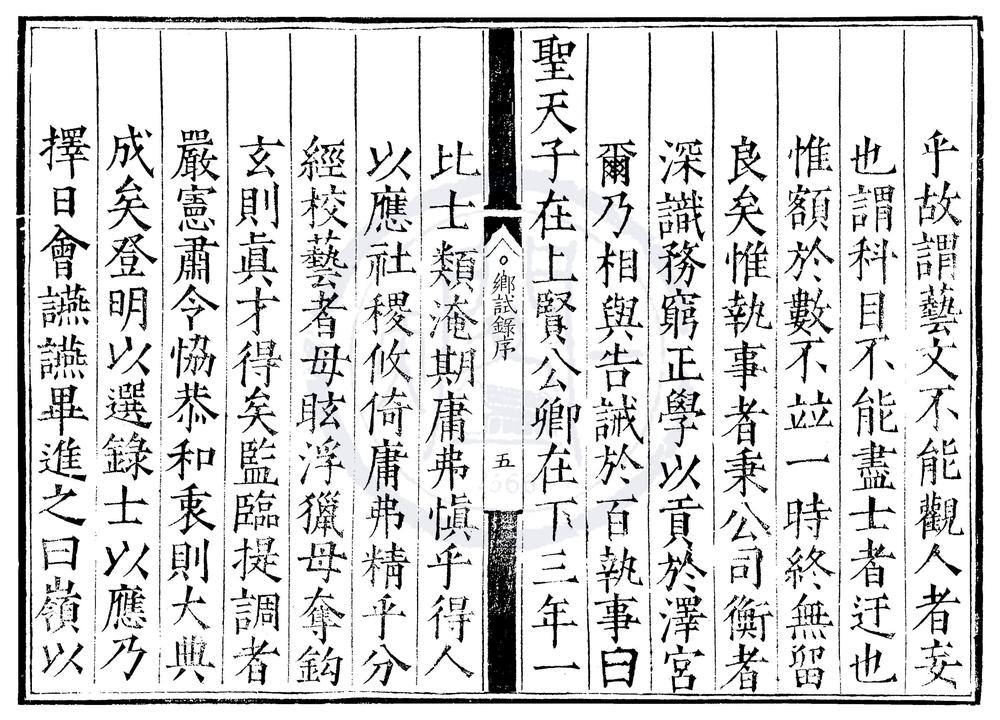 乎故謂藝文不能觀人者妄
也謂科目不能盡士者迂也
惟額於數不竝一時終無留
良矣惟執事者秉公司衡者
深識務窮正學以貢於澤宮
爾乃相與告誡於百執事曰
聖天子在上賢公卿在下三年一
鄉試錄序
五
比士類淹期庸弗慎乎得人
以應社稷攸倚庸弗精乎分
經校藝者毋眩浮獵毋奪鈎
玄則眞才得矣監臨提調者
嚴憲肅令恊恭和衷則大典
成矣登明以選錄士以應乃
擇日會讌讌畢進之曰嶺以